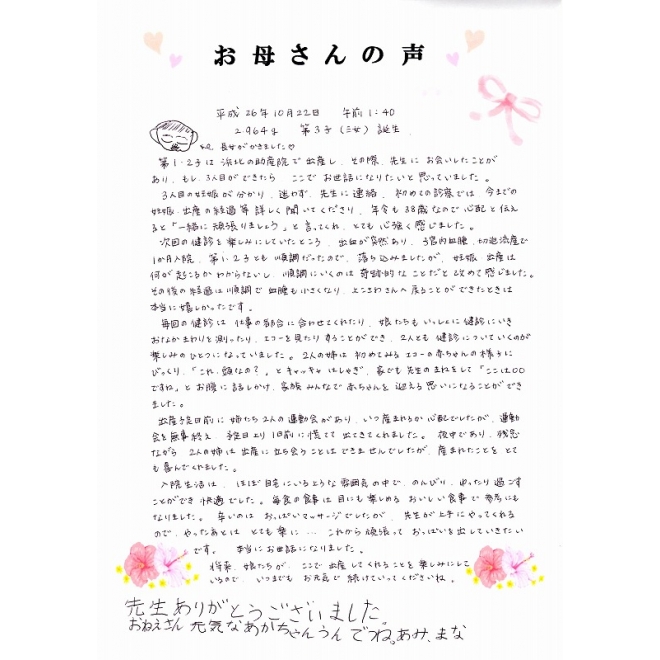 お母さんの声
平成26年10月22日 午前1:40
2964g 第3子(三女)誕生
長女がかきました♡
第1・2子は浜北の助産院で出産し、その際、先生にお会いしたことが
あり、もし3人目ができたら ここでお世話になりたいと思っていました。
3人目の妊娠が分かり、迷わず、先生に連絡、初めての診察では、今までの
妊娠・出産の経過等詳しく聞いてくださり、年令も38歳なので心配と伝え
ると「一緒に頑張りましょう」と言ってくれ、とても心強く感じました。
次回の健診を楽しみにしていたところ、出血が突然あり、子宮内血腫、切迫流産で
1か月入院、第1・2子とも順調だったので、落ち込みましたが、妊娠、出産は
何が起こるかわからないし、順調にいくのは奇跡的なことだと改めて感じました。
その後の経過は順調で血腫も小さくなり、よこさわさんへ戻ることができたときは
本当に嬉しかったです。
毎回の健診は仕事の都合に合わせてくれたり、娘たちもいっしょに健診にいき
おなかまわりを測ったり、エコーを見たりすることができ、2人とも健診についていくのが
楽しみのひとつになっていました。2人の姉は初めてみるエコーの赤ちゃんの様子に
びっくり、「これ、頭なの?」とキャッキャはしゃぎ、家でも先生のまねをして「ここは〇〇
ですね」とお腹に話しかけ、家族みんなで赤ちゃんを迎える思いになることができ
ました。
出産予定日前に姉たち2人の運動会があり、いつ産まれるか心配でしたが、運動
会を無事終え、予定日より1日前に慌てて出てきてくれました。夜中であり、残念
ながら2人の姉は出産に立ち会うことはできませんでしたが、産まれたことをとて
も喜んでくれました。
入院生活は、ほぼ自宅にいるような雰囲気の中で、のんびり、ゆったり過ごす
ことができ快適でした。毎食の食事は目にも楽しめるおいしい食事で参考にも
なりました。辛いのはおっぱいマッサージでしたが、先生が上手にやってくれる
ので、やったあとはとても楽に…これから頑張っておっぱいを出していきたい
です。本当にお世話になりました。
将来、娘たちが、ここで出産してくれることを楽しみにして
いるので、いつまでもお元気で続けていってくださいね。
先生ありがとうございました。
おねえさん 元気なあかちゃんうんでね。あみ、まな